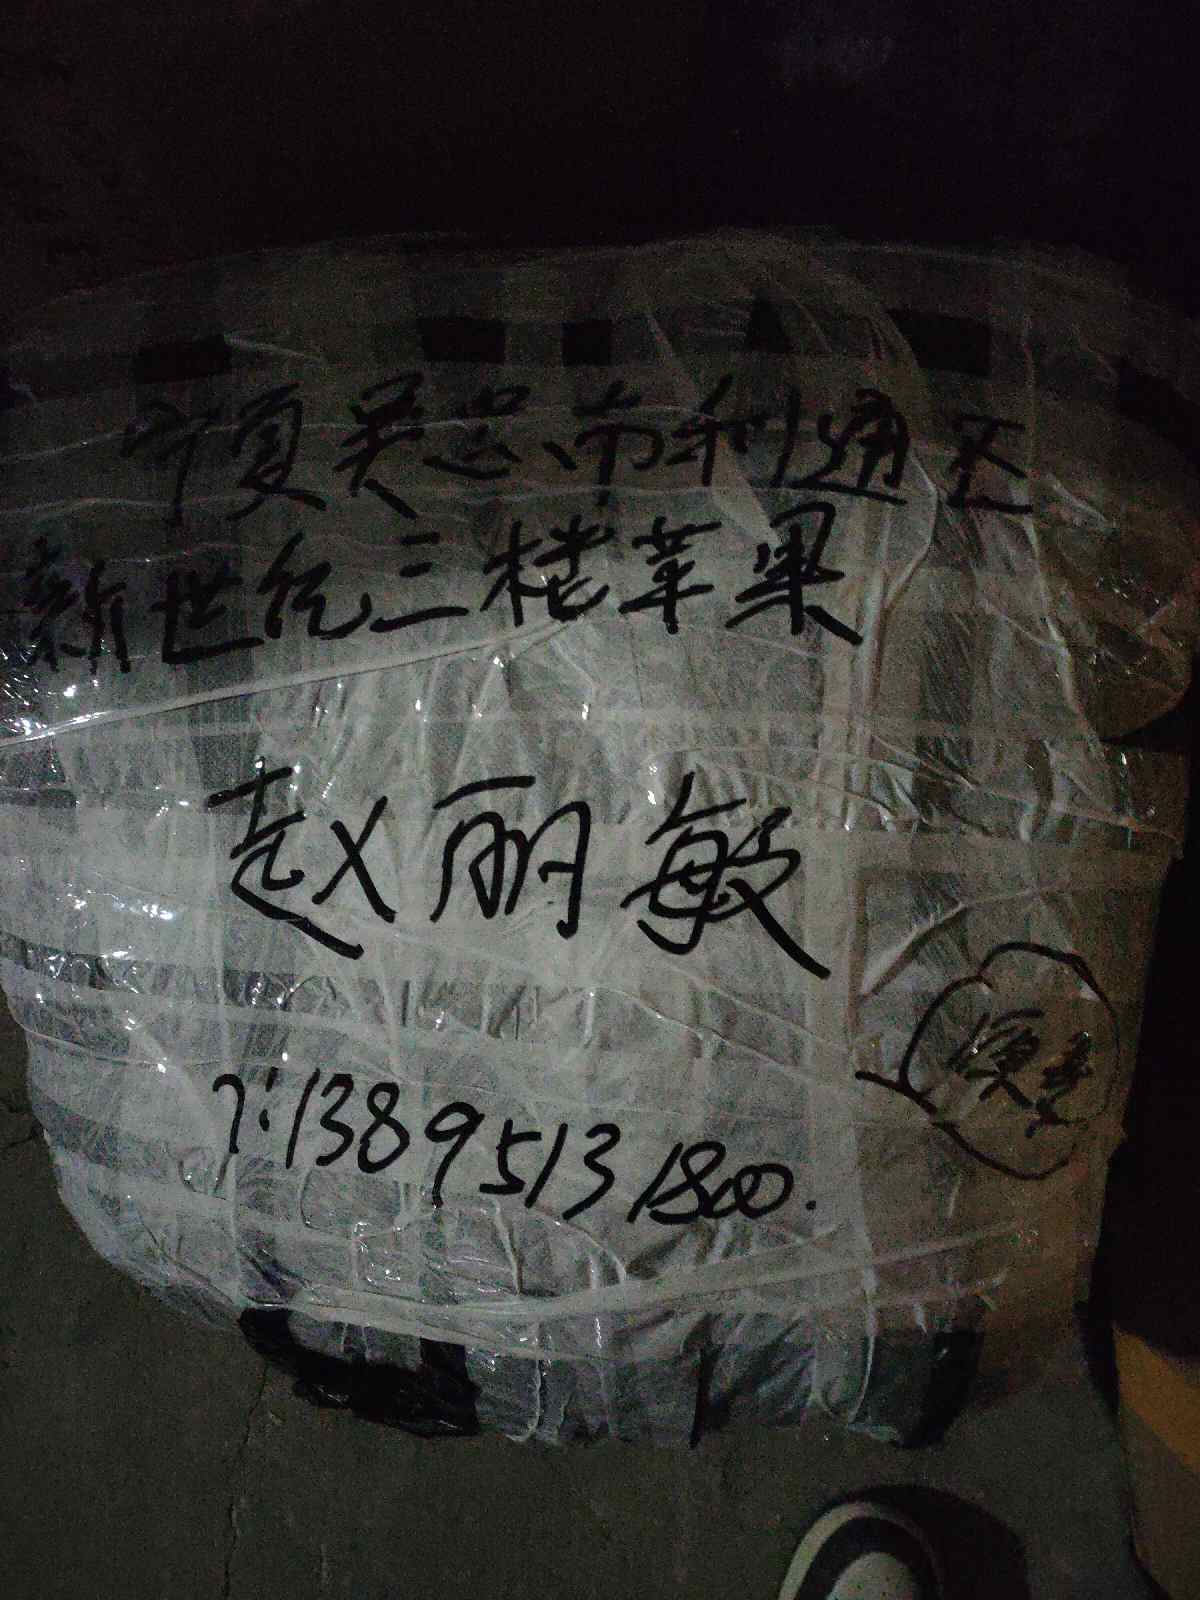 宁夏吴忠市利通区
新世纪三楼苹果
赵丽敏
T:13895131800.